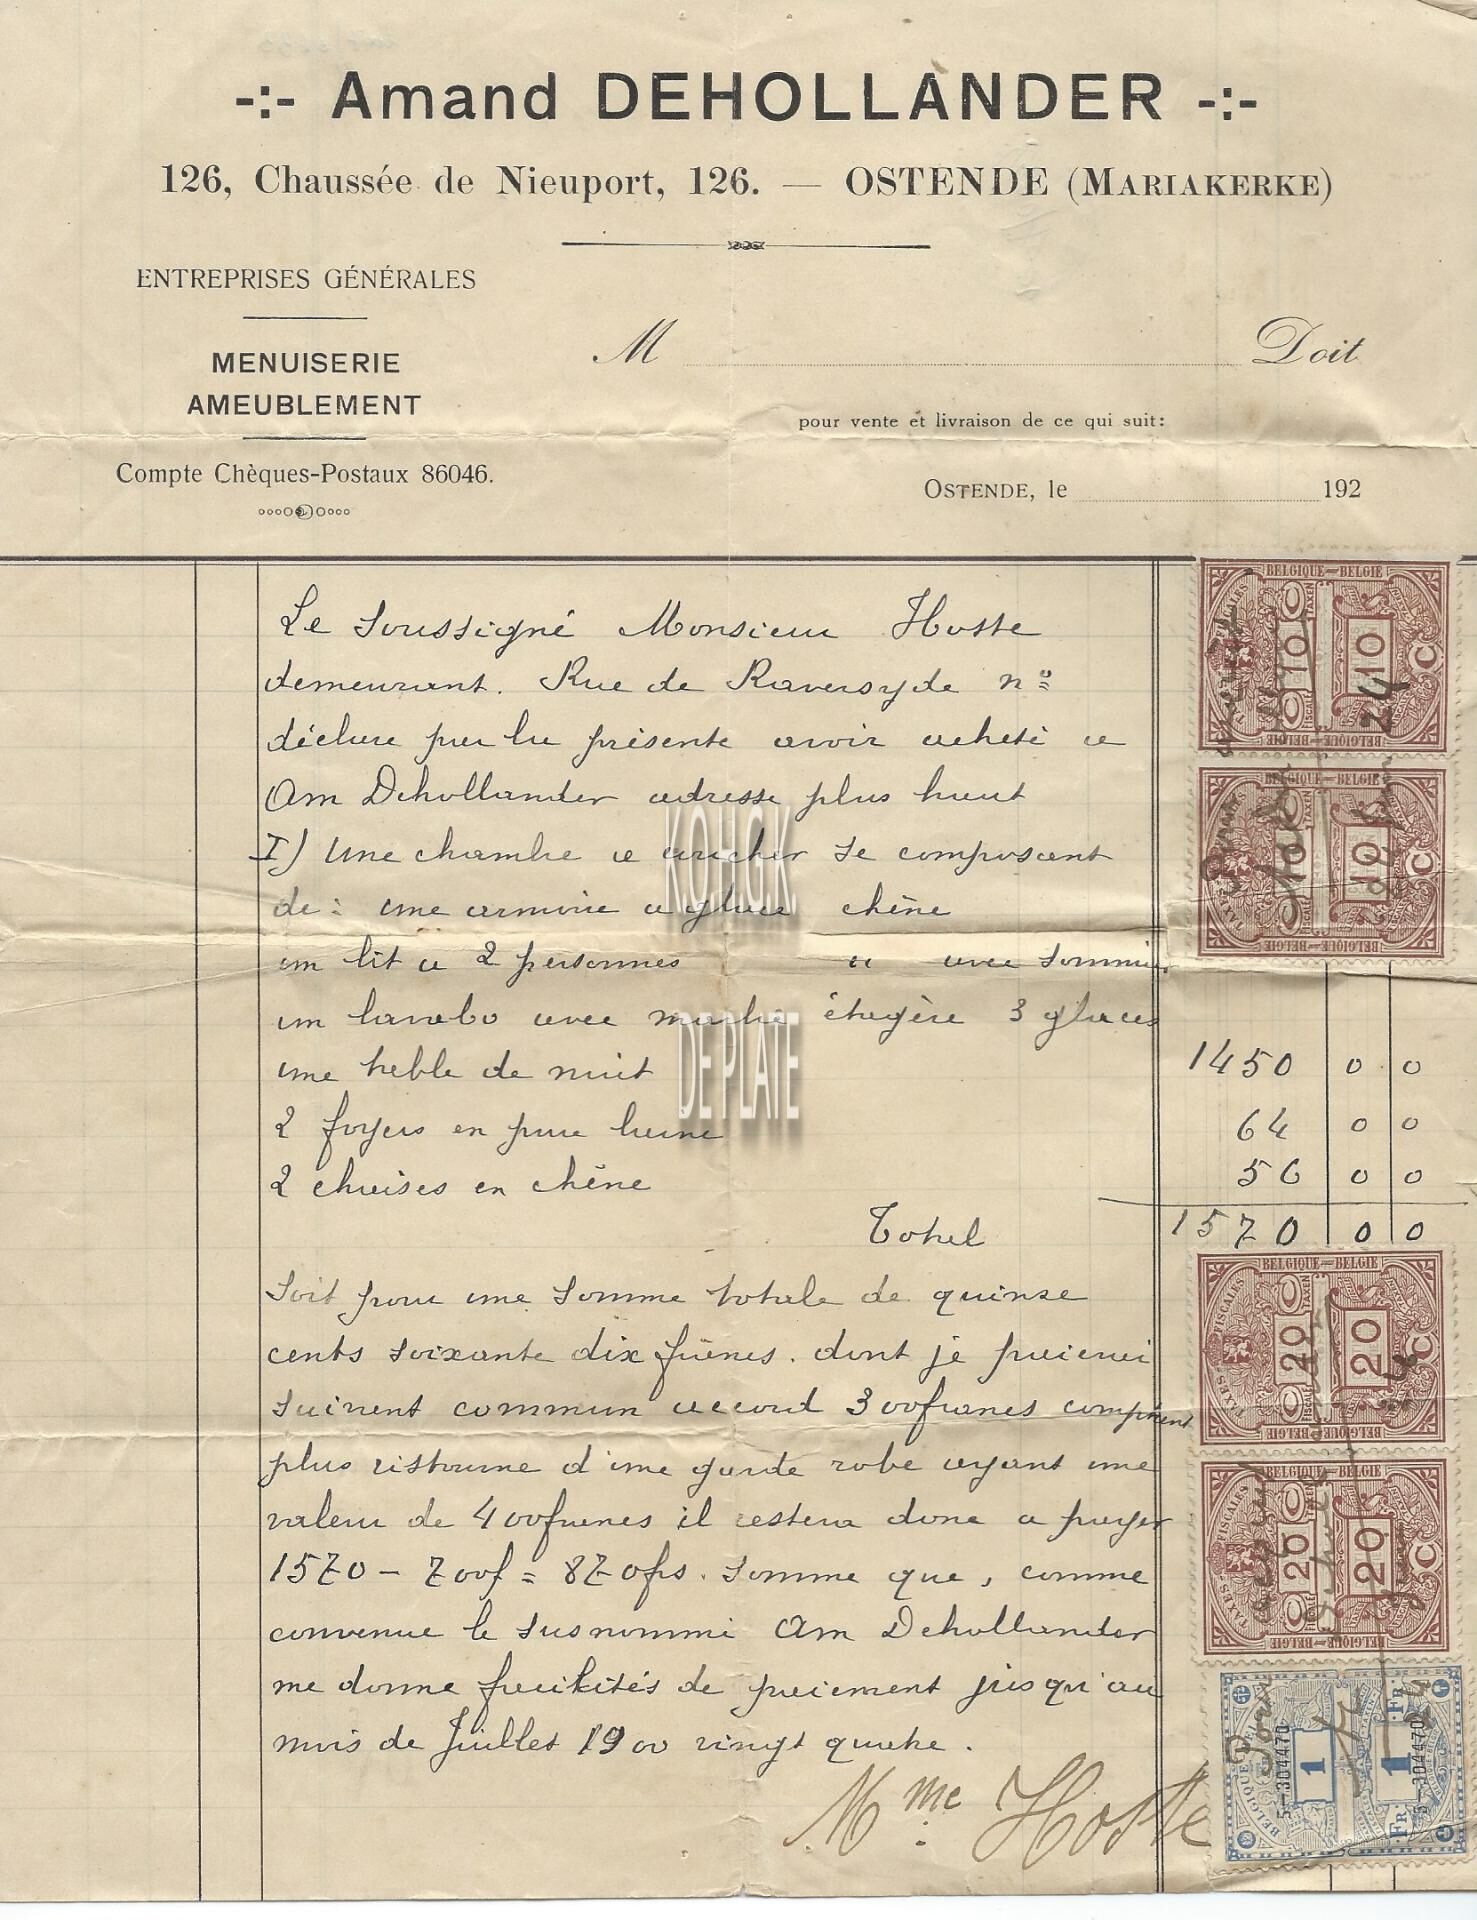 -:- Amand DEHOLLANDER -:-
126, Chaussée de Nieuport, 126. — OSTENDE (MARIAKERKE)
ENTREPRISES GÉNÉRALES
MENUISERIE
AMEUBLEMENT
Compte Chèques-Postaux 86046.
M Doit
pour vente et livraison de ce qui suit:
OSTENDE, le 192
Le Soussigné Monsieur Hoste
demeurant. Rue de Raversyde nº
déclare par la présente avoir acheté a
Am Dehollander adresse plus haut
I) Une chambre a coucher se composant
de: une armoire a glace chêne
un lit a 2 personnes " avec sommier
un lavabo avec marbre étagère 3 glaces
une table de nuit 1450 0 0
2 foyers en pure laine 64 0 0
2 chaises en chêne 56 0 0
Total 1570 0 0
Soit pour une somme totale de quinse
cents soixante dix francs. dont je paierai
suivent commun accord 300francs comptent
plus ristourne d'une garde robe ayant une
valeur de 400francs il restera donc a payer
1570 - 700f = 870frs. somme que, comme
convenue le susnommé Am Dehollander
me donne facilités de paiement jusqu'au
mois de Juillet 1900 vingt quatre.
Mme Hoste
K.O.H.G.K.
DE PLATE
BELGIQUE - BELGIE
TAXES FISCALES
FISCALE TAXEN
10 C
10 C
24
BELGIQUE - BELGIE
BELGIQUE - BELGIE
10 C
10 C
BELGIQUE - BELGIE
BELGIQUE - BELGIE
TAXES FISCALES
20 C
20 C
BELGIQUE - BELGIE
BELGIQUE - BELGIE
TAXES FISCALES
20 C
20 C
BELGIQUE - BELGIE
Pour
1
1 FR
5-304470
5-304470
24